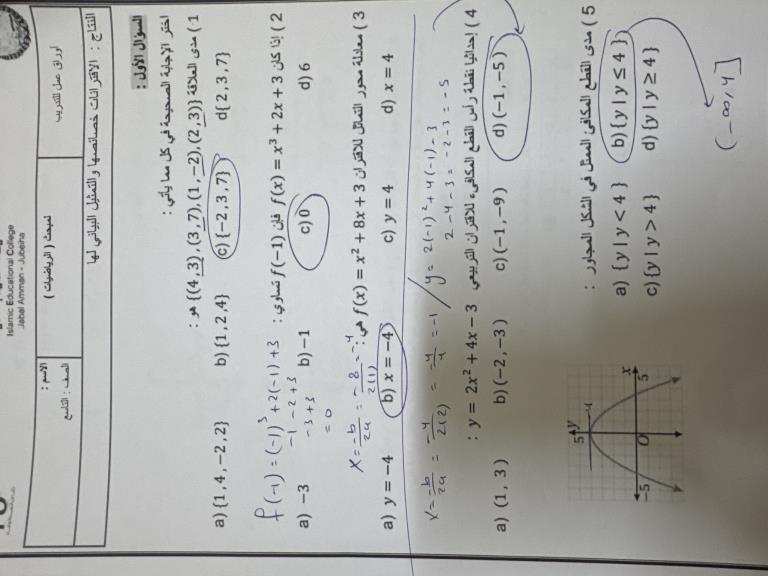 Islamic Educational College
Jabal Amman - Jubeiha
الاسم :
لمبحث ( الرياضيات )
أوراق عمل للتدريب
الصف : التاسع
النتاج : الاقترانات خصائصها و التمثيل البياني لها
السؤال الأول :
اختر الإجابة الصحيحة في كل مما يأتي :
1 ) مدى العلاقة {(4, 3),(3, 7),(1, −2),(2, 3)} هو :
a) {1, 4, −2, 2} b) {1, 2, 4} c) {−2, 3, 7} d){2, 3, 7}
2 ) إذا كان f(x) = x³ + 2x + 3 فإن f(−1) تساوي :
f(-1) = (-1)³ + 2(-1) + 3
-1 - 2 + 3
-3 + 3
= 0
a) −3 b) −1 c) 0 d) 6
3 ) معادلة محور التماثل للاقتران f(x) = x² + 8x + 3 هي :
x = -b/2a = -8/2(1) = -4
a) y = −4 b) x = −4 c) y = 4 d) x = 4
x = -b/2a = -4/2(2) = -4/4 = -1 / y = 2(-1)² + 4(-1) - 3
2 - 4 - 3 = -2 - 3 = -5
4 ) إحداثيا نقطة رأس القطع المكافىء للاقتران التربيعي y = 2x² + 4x − 3 :
a) (1, 3) b) (−2, −3) c) (−1, −9) d) (−1, −5)
5 ) مدى القطع المكافئ الممثل في الشكل المجاور :
a) {y | y < 4} b) {y | y ≤ 4}
c) {y | y > 4} d) {y | y ≥ 4}
(-∞, 4]
5 y
4
x
−5 O 5